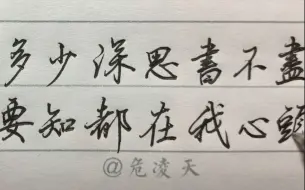 多少深思書不盡
要知都在我心頭
@危凌天